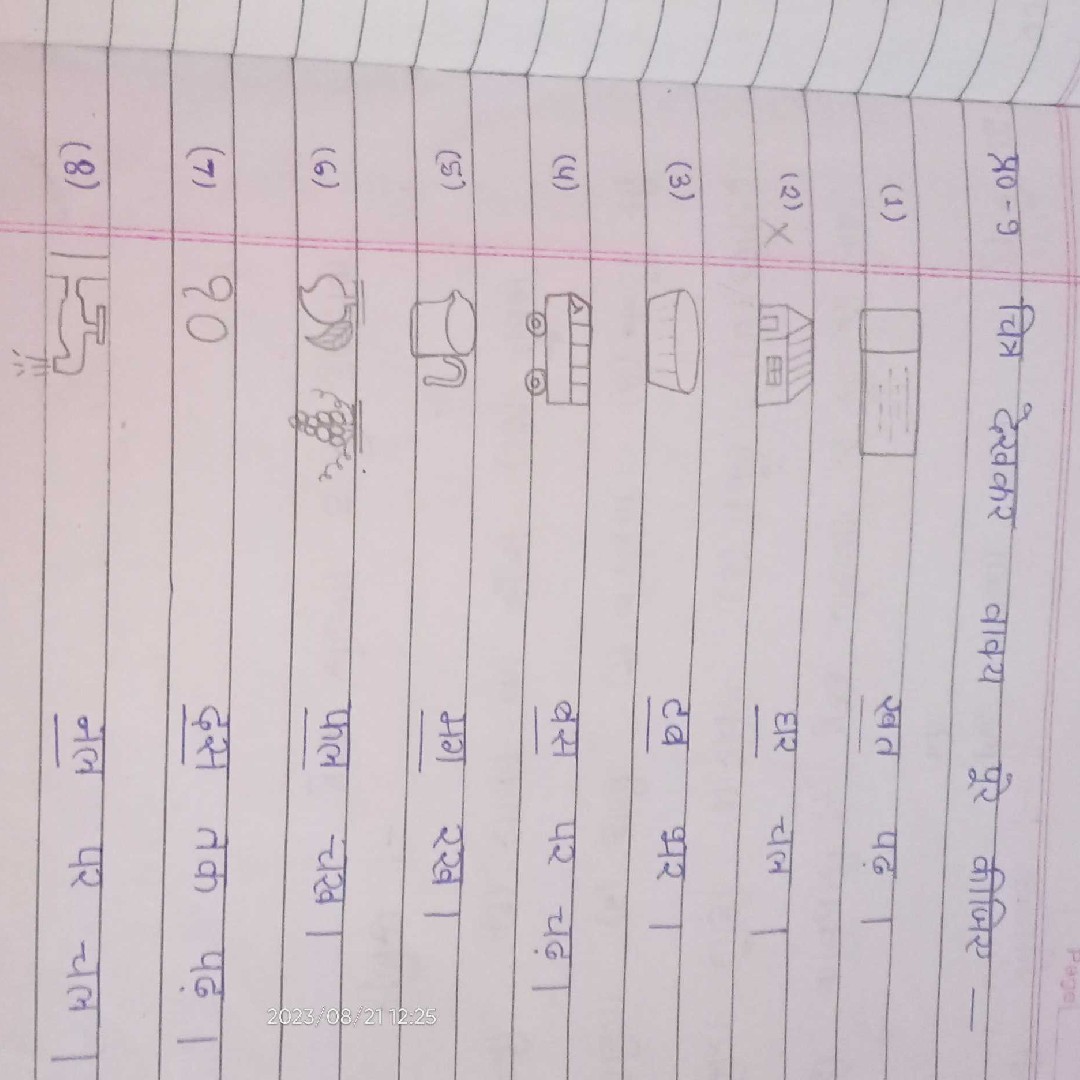 प्र० - 9 चित्र देखकर वाक्य पूरे कीजिए —
(1) खत पढ़ ।
(2) x घर चल ।
(3) टब भर ।
(4) बस पर चढ़ ।
(5) मग रख ।
(6) फल चख ।
(7) 90 दस तक पढ़ ।
(8) नल पर चल ।
Page
2023/08/21 12:25